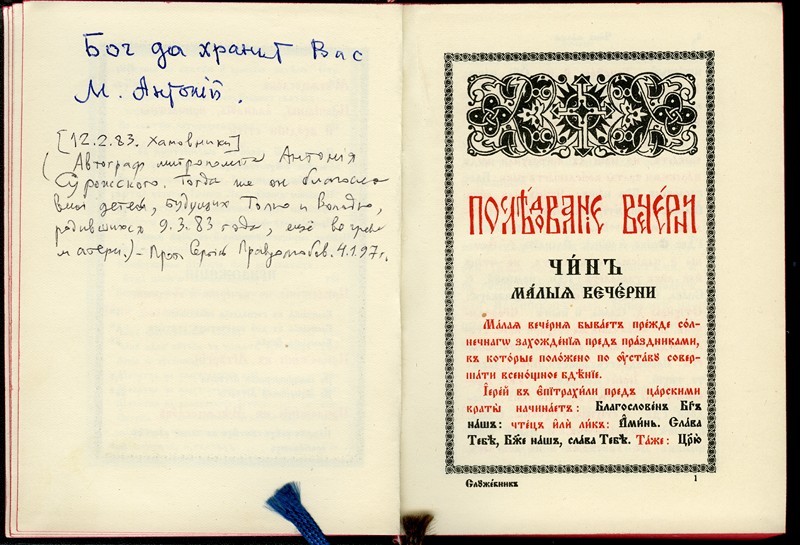 Бог да хранит Вас
М. Антоній.
[12.2.83. Хамовники]
(Автограф митрополита Антонія
Сурожского. Тогда же он благосло-
вил детей, будущих Толю и Володю,
родившихся 9.3.83 года, ещё во чреве
матери.) – Прот. Сергій Правдолюбов. 4.1.97 г.
Послѣ́дованїе вече́рни
Чи́нъ
ма́лыѧ вече́рни
Ма́лаѧ вече́рнѧ быва́етъ пре́жде со́л-
нечнагѡ захожде́нїѧ предъ пра́здниками,
въ кото́рые поло́жено по ᲂу҆ста́ву совер-
ша́ти всено́щное бдѣ́нїе.
І҆ере́й въ є҆пїтрахи́ли предъ ца́рскими
враты̀ начина́етъ: Благослове́нъ бг҃ъ
на́шъ: чте́цъ и҆лѝ ли́къ: А҆ми́нь. Сла́ва
Тебѣ̀, Бж҃е на́шъ, сла́ва Тебѣ̀. Та́же: Цр҃ю̀
Служе́бникъ
1